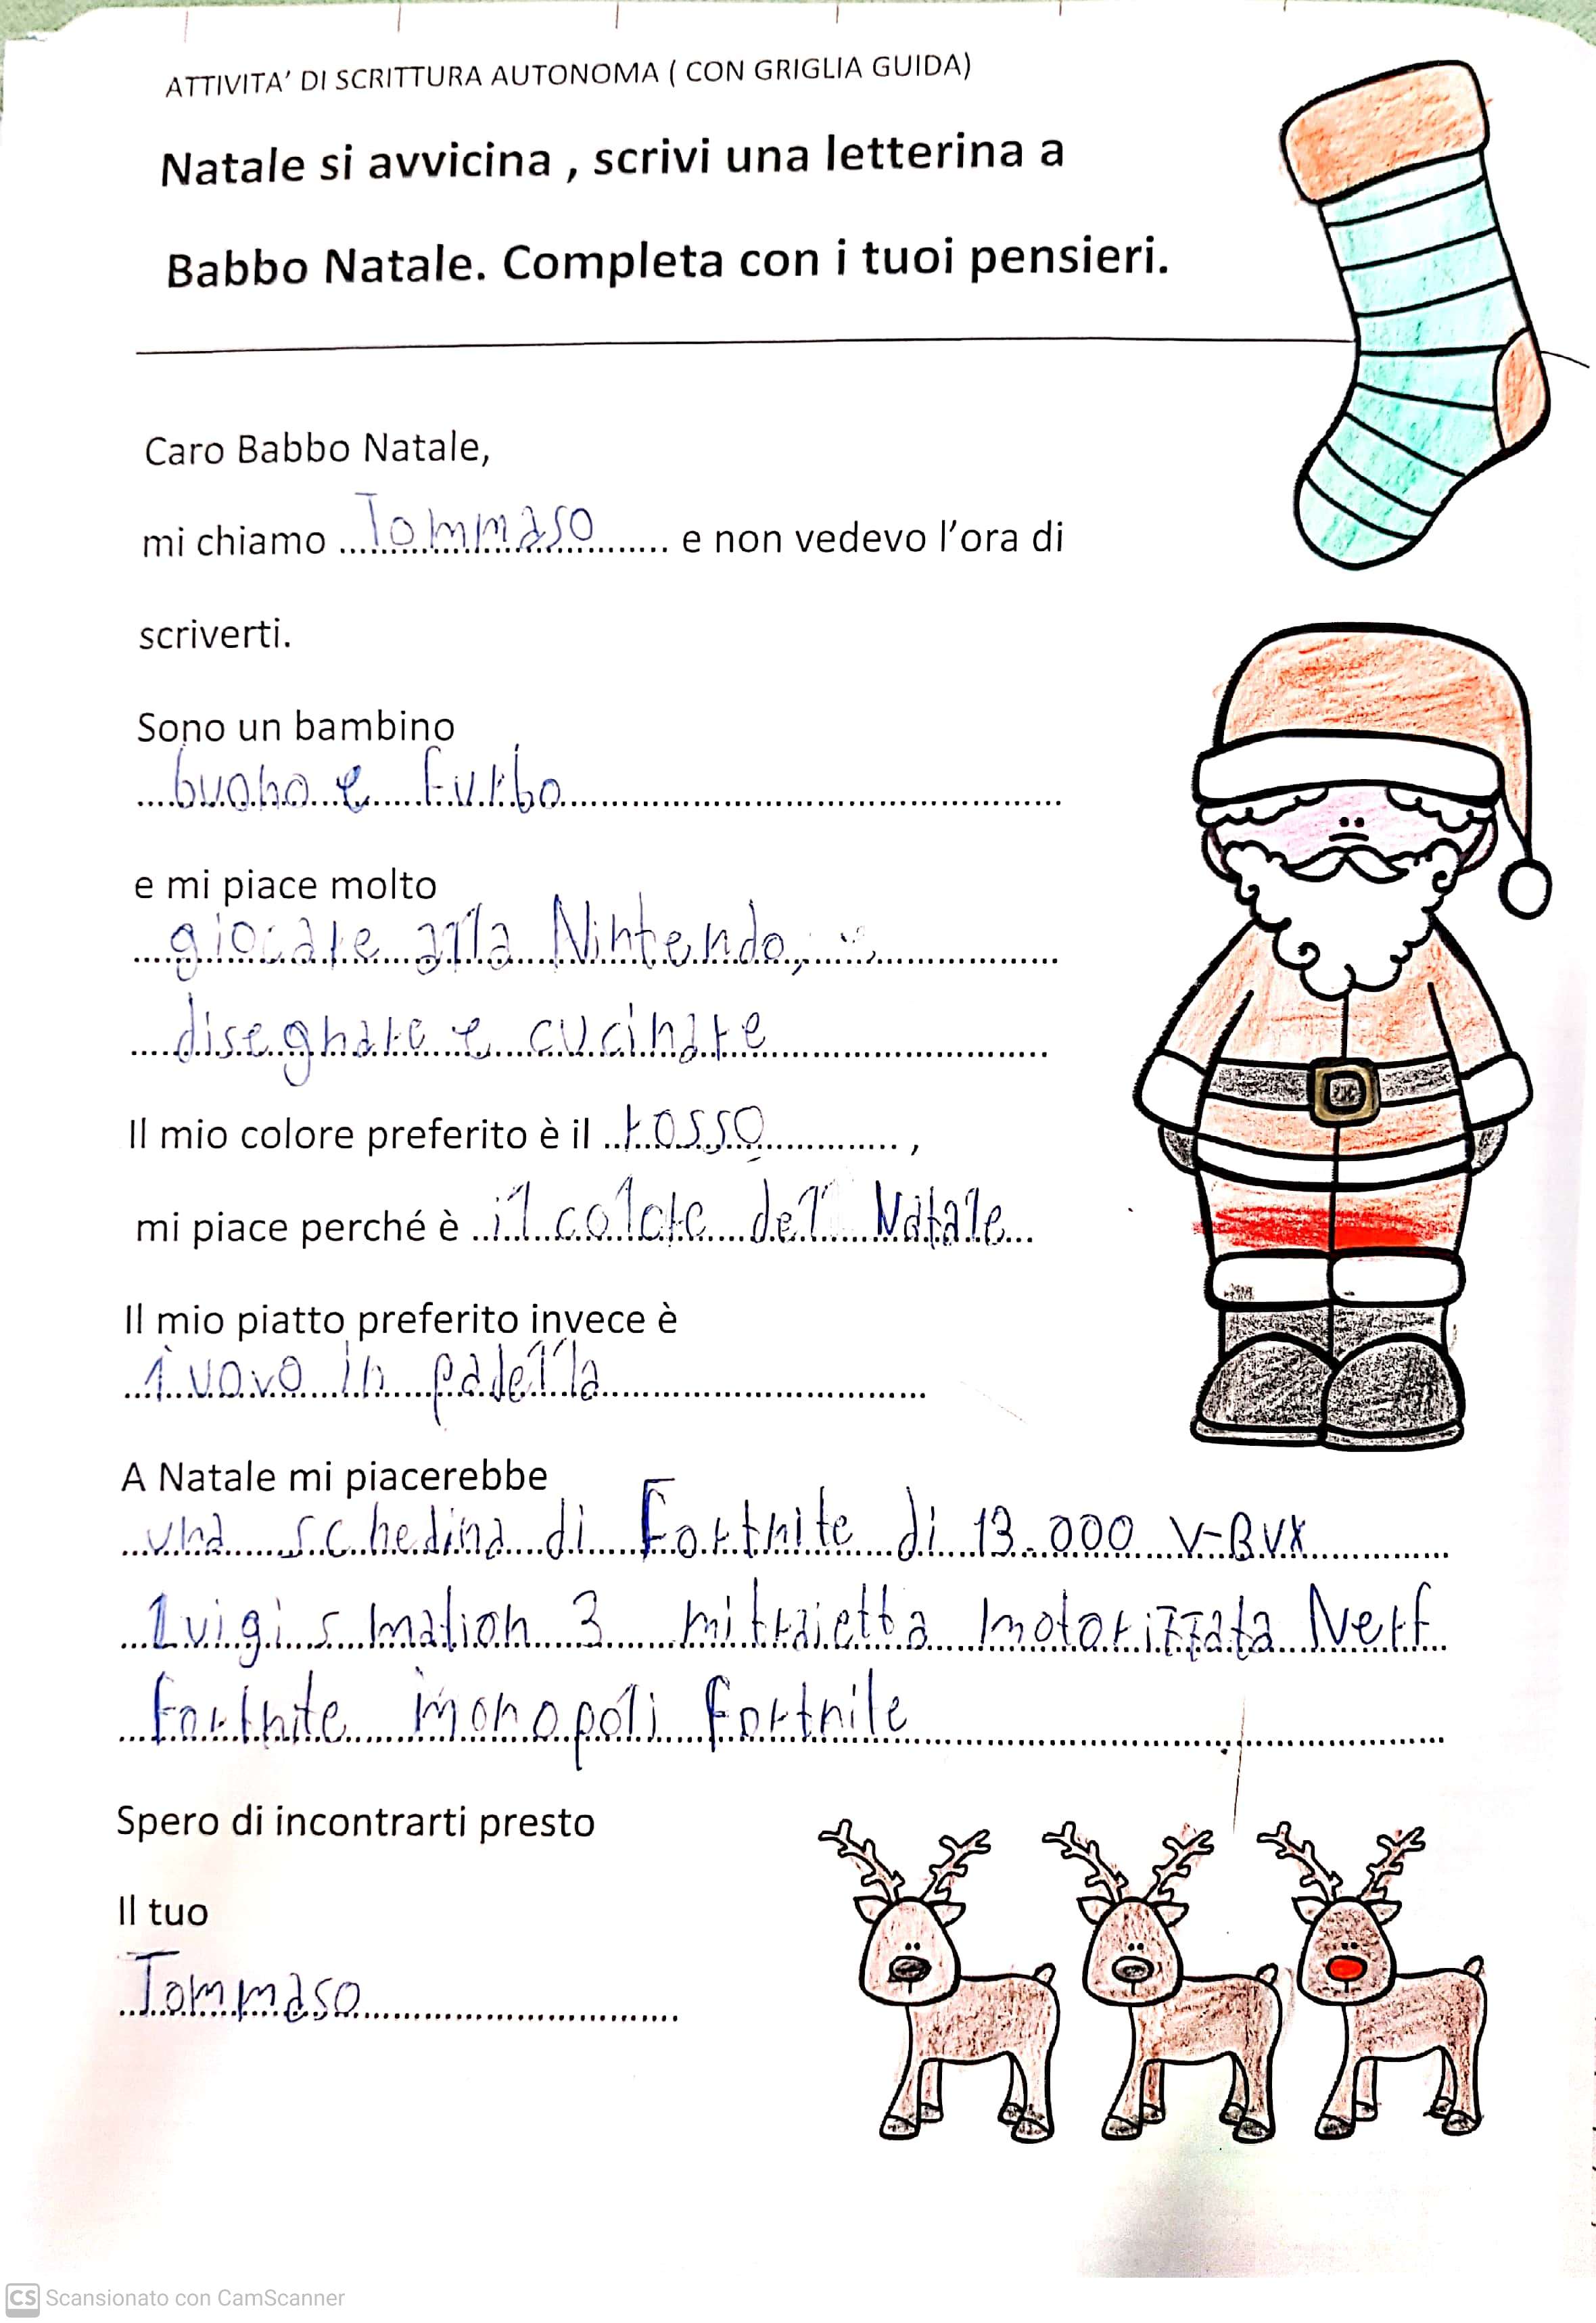 ATTIVITA' DI SCRITTURA AUTONOMA ( CON GRIGLIA GUIDA)
Natale si avvicina , scrivi una letterina a
Babbo Natale. Completa con i tuoi pensieri.
Caro Babbo Natale,
mi chiamo Tommaso e non vedevo l'ora di
scriverti.
Sono un bambino
buono e furbo
e mi piace molto
giocare alla Nintendo,
disegnare e cucinare
Il mio colore preferito è il rosso ,
mi piace perché è il colore del Natale
Il mio piatto preferito invece è
l'uovo in padella
A Natale mi piacerebbe
una schedina di Fortnite di 13.000 V-BUX
Luigi s mation 3 mitraietta motorizzata Nerf
Fortnite monopoli fortnite
Spero di incontrarti presto
Il tuo
Tommaso
CS Scansionato con CamScanner